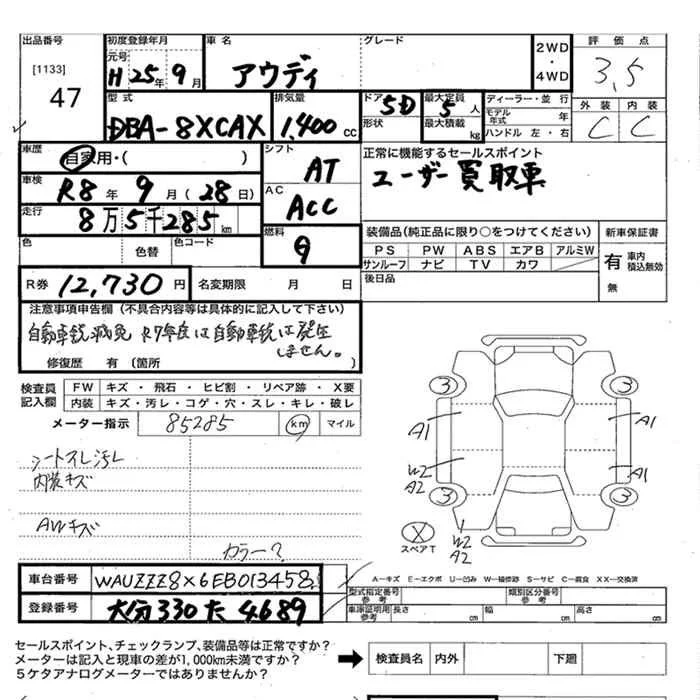 出品番号 初度登録年月 車名 グレード 2WD・4WD 評価点
[1133] 元号
47 H 25年 9月 アウディ 3,5
型式 排気量 ドア 5D 最大定員 5人 ディーラー・並行 外装 内装
DBA-8XCAX 1,400cc 形状 最大積載 kg モデル年式 年 C C
ハンドル 左・右
車歴 自家用・( ) シフト AT 正常に機能するセールスポイント
車検 R8年 9月(28日) AC ACC ユーザー買取車
走行 8万5千285km
色 色替 色コード 燃料 G 装備品(純正品に限り○をつけてください) 新車保証書
PS PW ABS エアB アルミW 有 車内積込無効
サンルーフ ナビ TV カワ 無
R券 12,730円 名変期限 月 日 後日品
注意事項申告欄(不具合内容等は具体的に記入して下さい)
自動車税減免 R7年度は自動車税は発生
しません。
修復歴 有(箇所 )
検査員記入欄 FW キズ・飛石・ヒビ割・リペア跡・X要
内装 キズ・汚レ・コゲ・穴・スレ・キレ・破レ
メーター指示 85285 km マイル
シートスレ汚レ
内装キズ
AWキズ
カラー?
3 3
A1 A1
W2 A2 A1
3 3
X W2
スペアT A2
車台番号 WAUZZZ8X6EB013458
登録番号 大分330た4689
A-キズ E-エクボ U-凹み W-補修跡 S-サビ C-腐食 XX-交換済
型式指定番号 参考 類別区分番号 参考
車庫証明用 参考 長さ cm 幅 cm 高さ cm
セールスポイント、チェックランプ、装備品等は正常ですか?
メーターは記入と現車の差が1,000km未満ですか?
5ケタアナログメーターではありませんか?
検査員名 内外 下廻